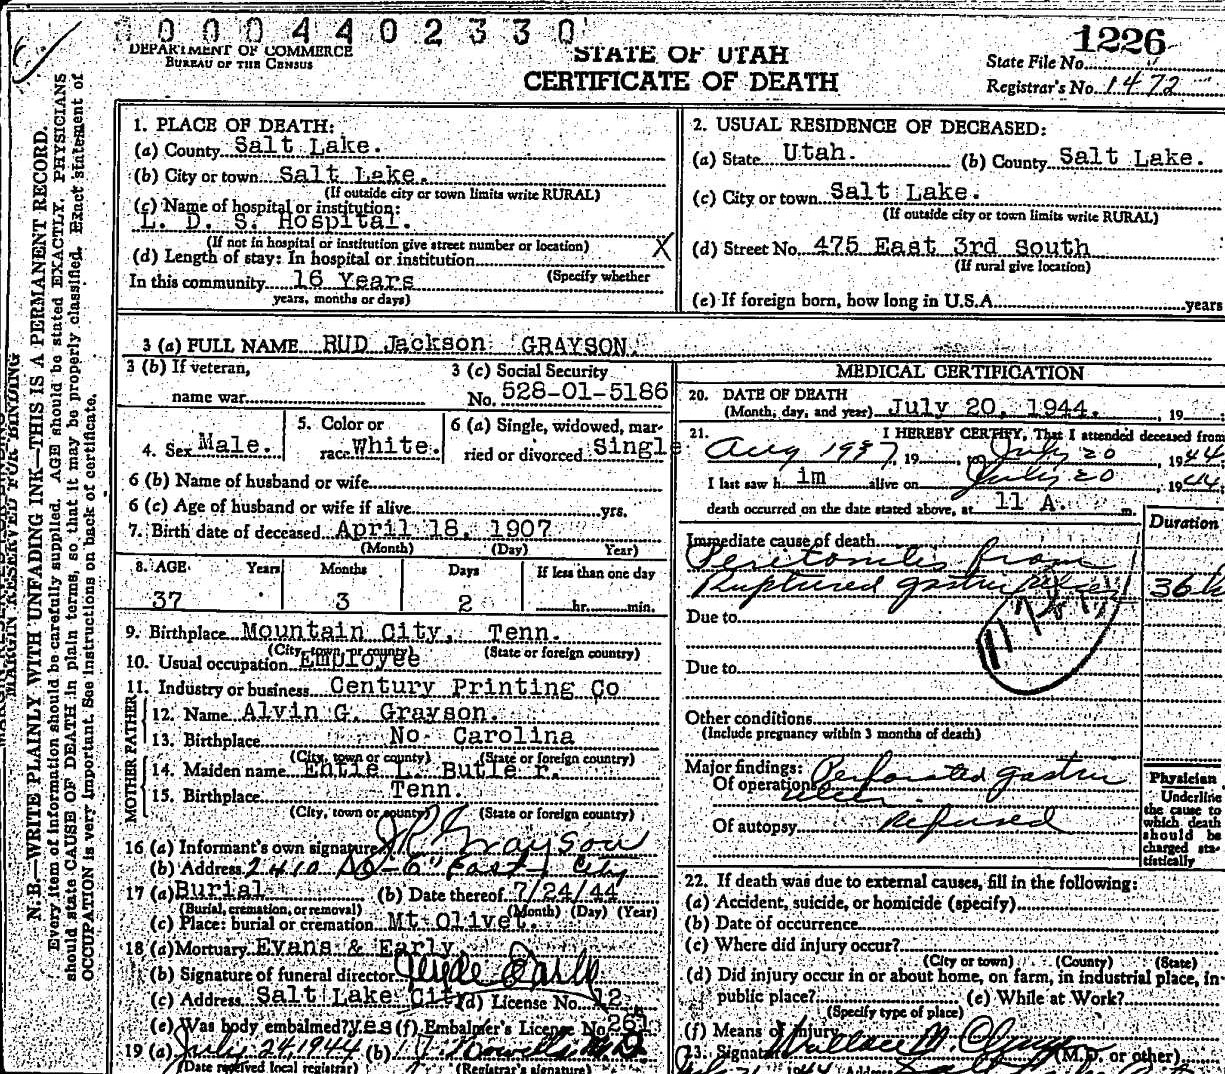 00004402330
DEPARTMENT OF COMMERCE
BUREAU OF THE CENSUS
STATE OF UTAH
CERTIFICATE OF DEATH
1226
State File No.
Registrar's No. 1472
N. B.—WRITE PLAINLY WITH UNFADING INK—THIS IS A PERMANENT RECORD.
Every item of information should be carefully supplied. AGE should be stated EXACTLY. PHYSICIANS
should state CAUSE OF DEATH in plain terms, so that it may be properly classified. Exact statement of
OCCUPATION is very important. See instructions on back of certificate.
MARGIN RESERVED FOR BINDING
1. PLACE OF DEATH:
(a) County Salt Lake.
(b) City or town Salt Lake.
(If outside city or town limits write RURAL)
(c) Name of hospital or institution:
L. D. S. Hospital.
(If not in hospital or institution give street number or location)
(d) Length of stay: In hospital or institution
X
(Specify whether
In this community 16 Years
years, months or days)
2. USUAL RESIDENCE OF DECEASED:
(a) State Utah. (b) County Salt Lake.
(c) City or town Salt Lake.
(If outside city or town limits write RURAL)
(d) Street No. 475 East 3rd South
(If rural give location)
(e) If foreign born, how long in U.S.A. years
3 (a) FULL NAME RUD Jackson GRAYSON.
3 (b) If veteran,
name war
3 (c) Social Security
No. 528-01-5186
4. Sex Male.
5. Color or
race White.
6 (a) Single, widowed, mar-
ried or divorced Single
6 (b) Name of husband or wife
6 (c) Age of husband or wife if alive yrs.
7. Birth date of deceased April 18, 1907
(Month) (Day) Year)
8. AGE Years Months Days If less than one day
37 3 2 hr. min.
9. Birthplace Mountain City, Tenn.
(City, town, or county) (State or foreign country)
10. Usual occupation Employee
11. Industry or business Century Printing Co
FATHER
12. Name Alvin G. Grayson.
13. Birthplace No. Carolina
(City, town or county) (State or foreign country)
MOTHER
14. Maiden name Entie L. Butle r.
15. Birthplace Tenn.
(City, town or county) (State or foreign country)
16 (a) Informant's own signature J R Grayson
(b) Address 2410 So - 6" East - City
17 (a) Burial (b) Date thereof 7/24/44
(Burial, cremation, or removal) (Month) (Day) (Year)
(c) Place: burial or cremation Mt Olivet.
18 (a) Mortuary Evans & Early
(b) Signature of funeral director Clyde Early
(c) Address Salt Lake City (d) License No. 12
(e) Was body embalmed? yes (f) Embalmer's License No. 261
19 (a) July 24, 1944 (b) M.D.
(Date received local registrar) (Registrar's signature)
MEDICAL CERTIFICATION
20. DATE OF DEATH
(Month, day, and year) July 20, 1944. , 19
21. I HEREBY CERTIFY, That I attended deceased from
Aug 1937, 19 , to July 20 , 1944.
I last saw h im alive on July 20 , 1944,
death occurred on the date stated above, at 11 A. m.
Duration
Immediate cause of death
Peritonitis from
Ruptured gastric ulcer 36 h
Due to
Due to
Other conditions
(Include pregnancy within 3 months of death)
Major findings:
Of operations Perforated gastric
ulcer
Of autopsy Refused
Physician
Underline
the cause to
which death
should be
charged sta-
tistically
22. If death was due to external causes, fill in the following:
(a) Accident, suicide, or homicide (specify)
(b) Date of occurrence
(c) Where did injury occur?
(City or town) (County) (State)
(d) Did injury occur in or about home, on farm, in industrial place, in
public place? (e) While at Work?
(Specify type of place)
(f) Means of Injury
23. Signature Wallace (M.D. or other)